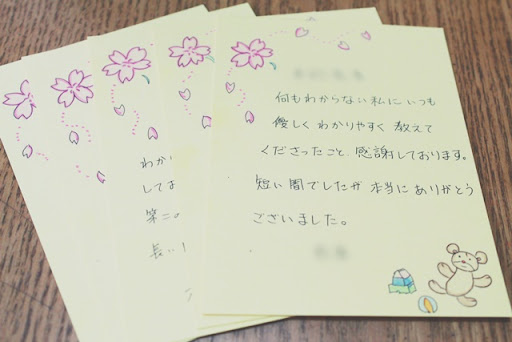 何もわからない私にいつも
優しくわかりやすく教えて
くださったこと、感謝しております。
短い間でしたが本当にありがとう
ございました。
わか
してお
第二の
長い